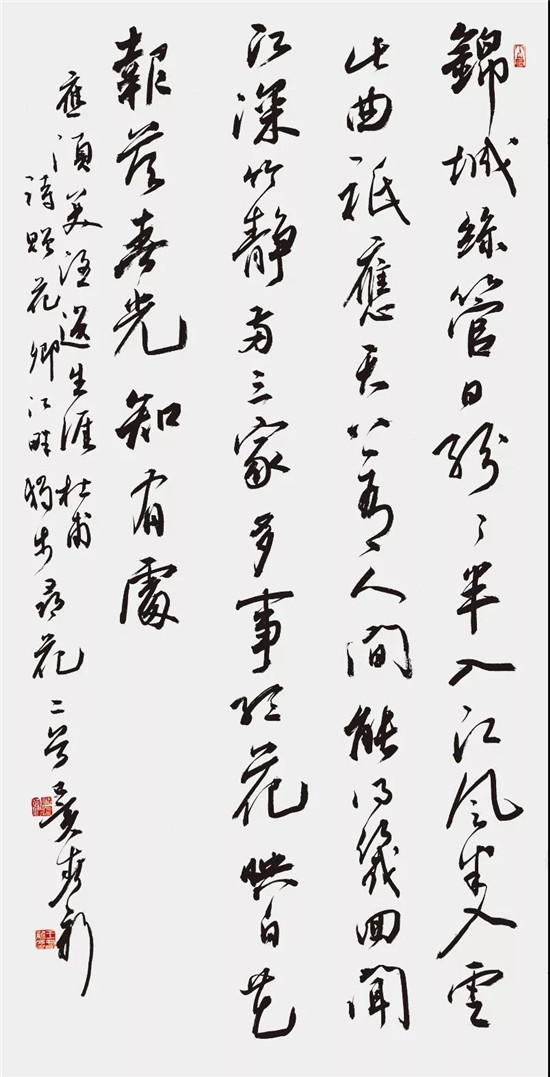 錦城絲管日紛々半入江風半入雲
此曲祇應天上有人間能得幾回聞
江深竹靜兩三家多事紅花映白花
報答春光知有處
應須美酒送生涯杜甫
詩贈花卿江畔獨步尋花二首